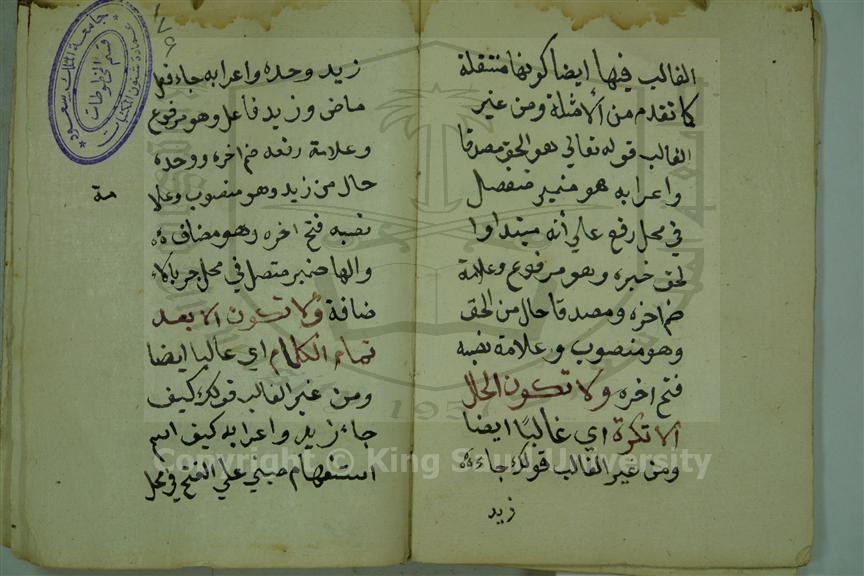 الغالب فيها ايضا كونها منتقلة
كما تقدم من الأمثلة ومن غير
الغالب قوله تعالي هو الحق مصدقا
واعرابه هو ضمير منفصل
في محل رفع علي أنه مبتدا وا
لحق خبره وهو مرفوع وعلامة
ضم اخره ومصدقا حال من الحق
وهو منصوب وعلامة نصبه
فتح اخره ولا تكون الحال
الا نكرة اي غالبا ايضا
ومن غير الغالب قولك جاء
زيد
زيد وحده واعرابه جاء فعل
ماض وزيد فاعل وهو مرفوع
وعلامة رفعه ضم اخره ووحده
حال من زيد وهو منصوب وعلا
مة
نصبه فتح اخره وهو مضاف
والها ضمير متصل في محل جر بالا
ضافة ولا تكون الا بعد
تمام الكلام اي غالبا ايضا
ومن غير الغالب قولك كيف
جاء زيد واعرابه كيف اسم
استفهام مبني علي الفتح في محل
جامعة الملك سعود
عمادة شئون المكتبات
قسم المخطوطات
1957
Copyright © King Saud University